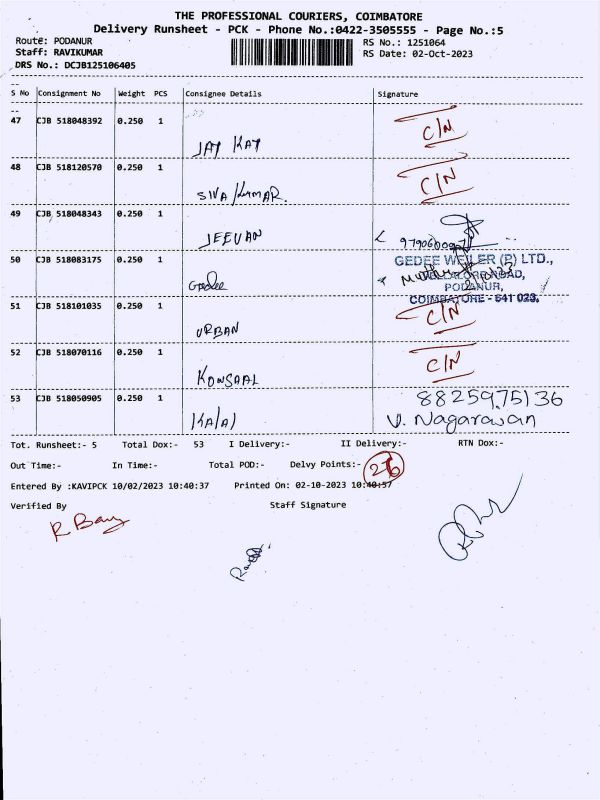 THE PROFESSIONAL COURIERS, COIMBATORE
Delivery Runsheet - PCK - Phone No.:0422-3505555 - Page No.:5
Route: PODANUR RS No.: 1251064
Staff: RAVIKUMAR RS Date: 02-Oct-2023
DRS No.: DCJB125106405
S No Consignment No Weight PCS Consignee Details Signature
47 CJB 518048392 0.250 1 C/N
JAY KAY
48 CJB 518120570 0.250 1 C/N
SIVA KUMAR.
49 CJB 518048343 0.250 1
JEEVAN
50 CJB 518083175 0.250 1 GEDEE WEILER (P) LTD.,
Gedee VELLALORE ROAD,
PODANUR,
COIMBATORE - 641 023.
51 CJB 518101035 0.250 1 C/N
URBAN
52 CJB 518070116 0.250 1 C/N
KONSAAL
53 CJB 518050905 0.250 1 8825975136
KALAI V. Nagarawan
Tot. Runsheet:- 5 Total Dox:- 53 I Delivery:- II Delivery:- RTN Dox:-
Out Time:- In Time:- Total POD:- Delvy Points:- 26
Entered By :KAVIPCK 10/02/2023 10:40:37 Printed On: 02-10-2023 10:40:57
Verified By Staff Signature